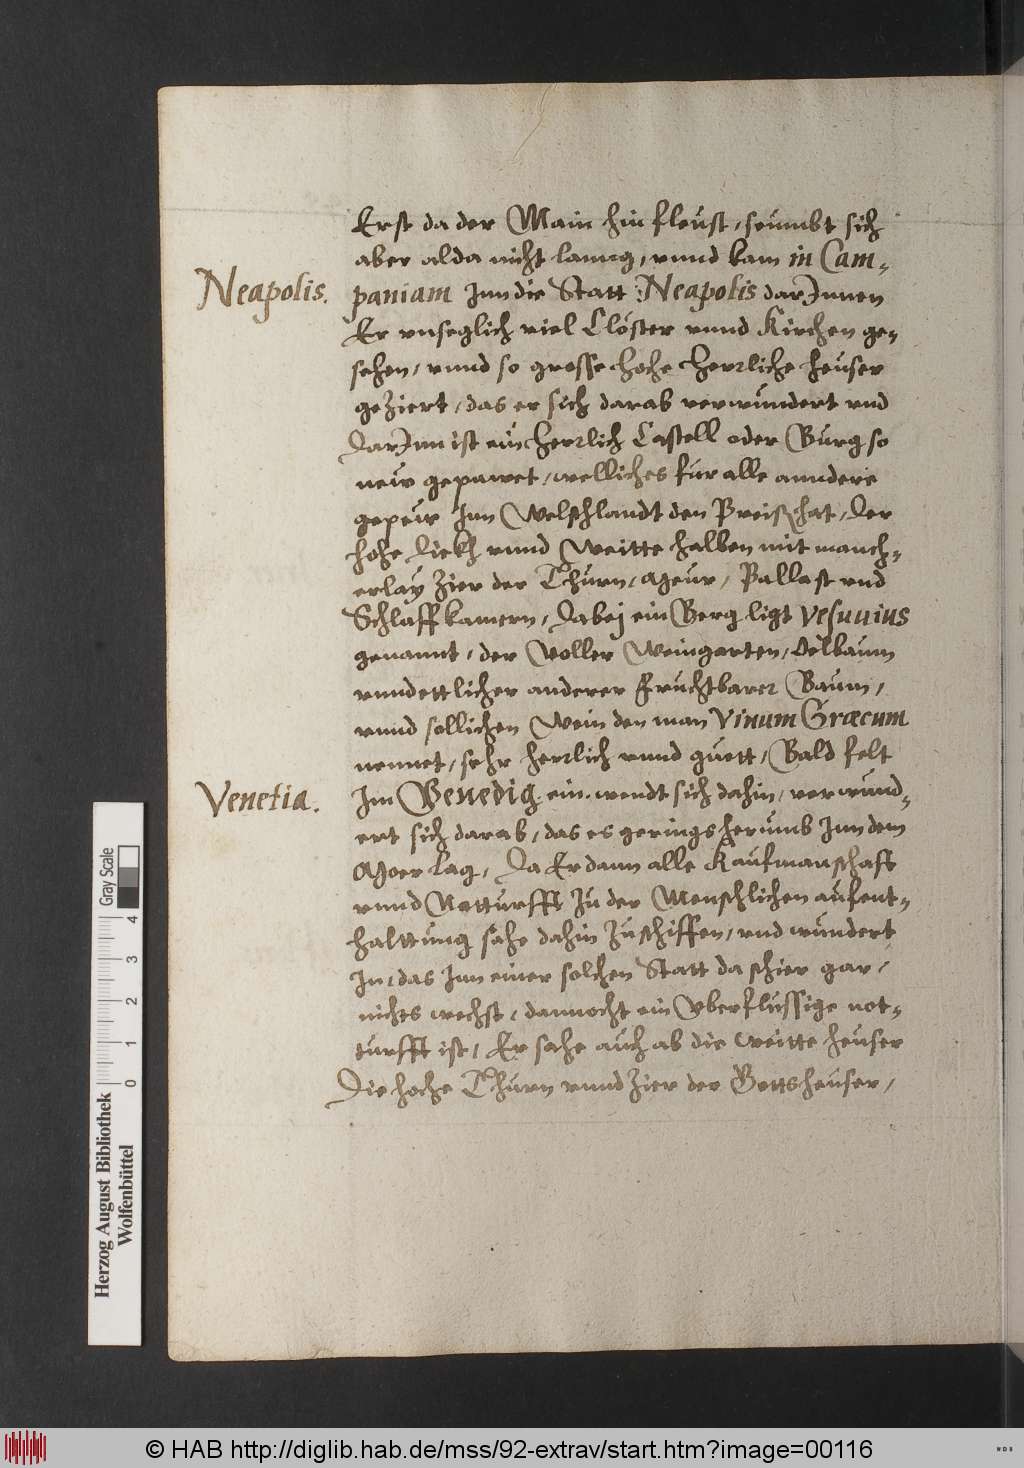 Erst da der Main hin fleust, seumbt sich
aber alda nicht lanng, vnnd kam in Cam-
Neapolis.
paniam Jnn die Statt Neapolis darJnnen
Er vnseglich viel Clöster vnnd Kirchen ge-
sehen, vnnd so grosse hohe herrliche heuser
geziert, das er sich darab verwundert vnd
darJnn ist ein herrlich Castell oder Burg so
new gepawet, welliches fur alle anndere
gepew Jnn Welschlandt den Preiß hat, der
hohe dickh vnnd Weitte halben mit manch-
erlay Zier der Thurn, Meur, Pallast vnd
Schlaffkamern, dabej ein Berg ligt Vesuuius
genannt, der Voller Weingarten, Oelbaum
vnndettlicher anderer fruchtbarer Baum,
vnnd sollichen Wein den man Vinum Græcum
nennet, sehr herrlich vnnd guett, Bald felt
Venetia.
Jm Venedig ein. wendt sich dahin, verwund-
ert sich darab, das es gerings herumb Jnn dem
Moer lag, da Er dann alle Kaufmanschafft
vnnd Notturfft zu der Menschlichen aufent-
halttung sahe dahin zuschiffen, vnd wundert
Jn, das Jnn einer solchen Statt da schier gar,
nichts wechst, dannocht ein Vberflussige not-
turfft ist, Er sahe auch ab die weitte heuser
die hohe Thurn vnnd Zier der Gottsheuser,
Gray Scale
4 3 2 1 0
Herzog August Bibliothek
Wolfenbüttel
© HAB http://diglib.hab.de/mss/92-extrav/start.htm?image=00116